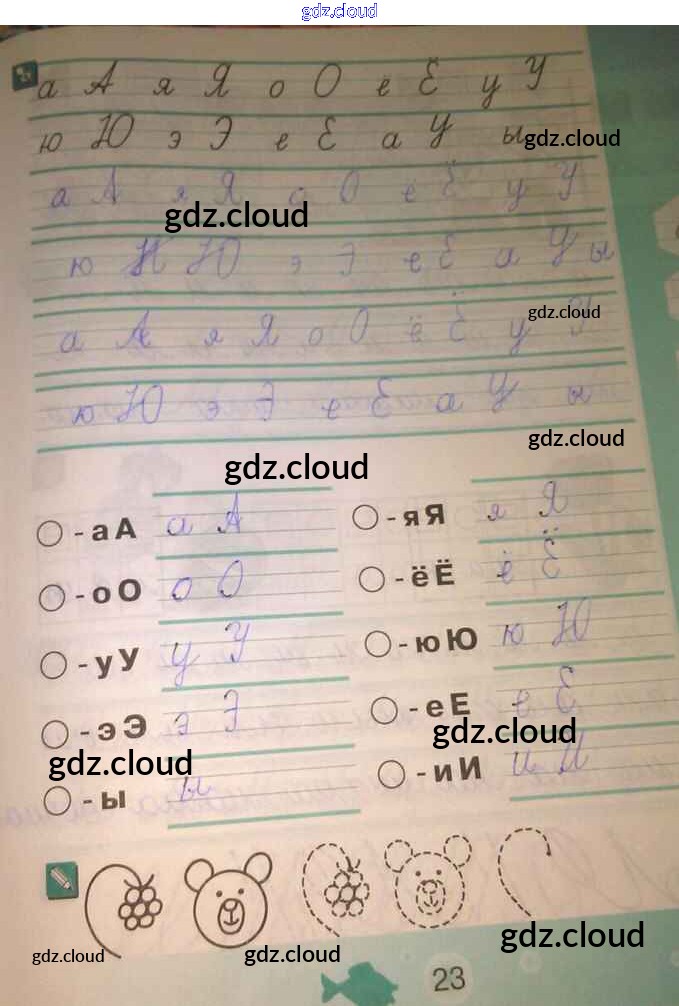 gdz.cloud
а А я Я о О ё Ё у У
ю Ю э Э е Е а У ы gdz.cloud
а А я Я о О ё Ё у У
gdz.cloud
ю И Ю э Э е Е и У ы
gdz.cloud
а А я Я о О ё Ё у У
ю Ю э Э е Е а У ы
gdz.cloud
gdz.cloud
- а А а А - я Я я Я
- о О о О - ё Ё ё Ё
- у У у У - ю Ю ю Ю
- э Э э Э - е Е е Е
gdz.cloud gdz.cloud
- ы ы - и И и И
gdz.cloud gdz.cloud gdz.cloud
23